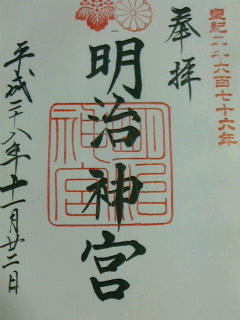 皇紀二千六百七十六年
奉拝
明治神宮
明治神宮
平成二十八年十一月廿二日